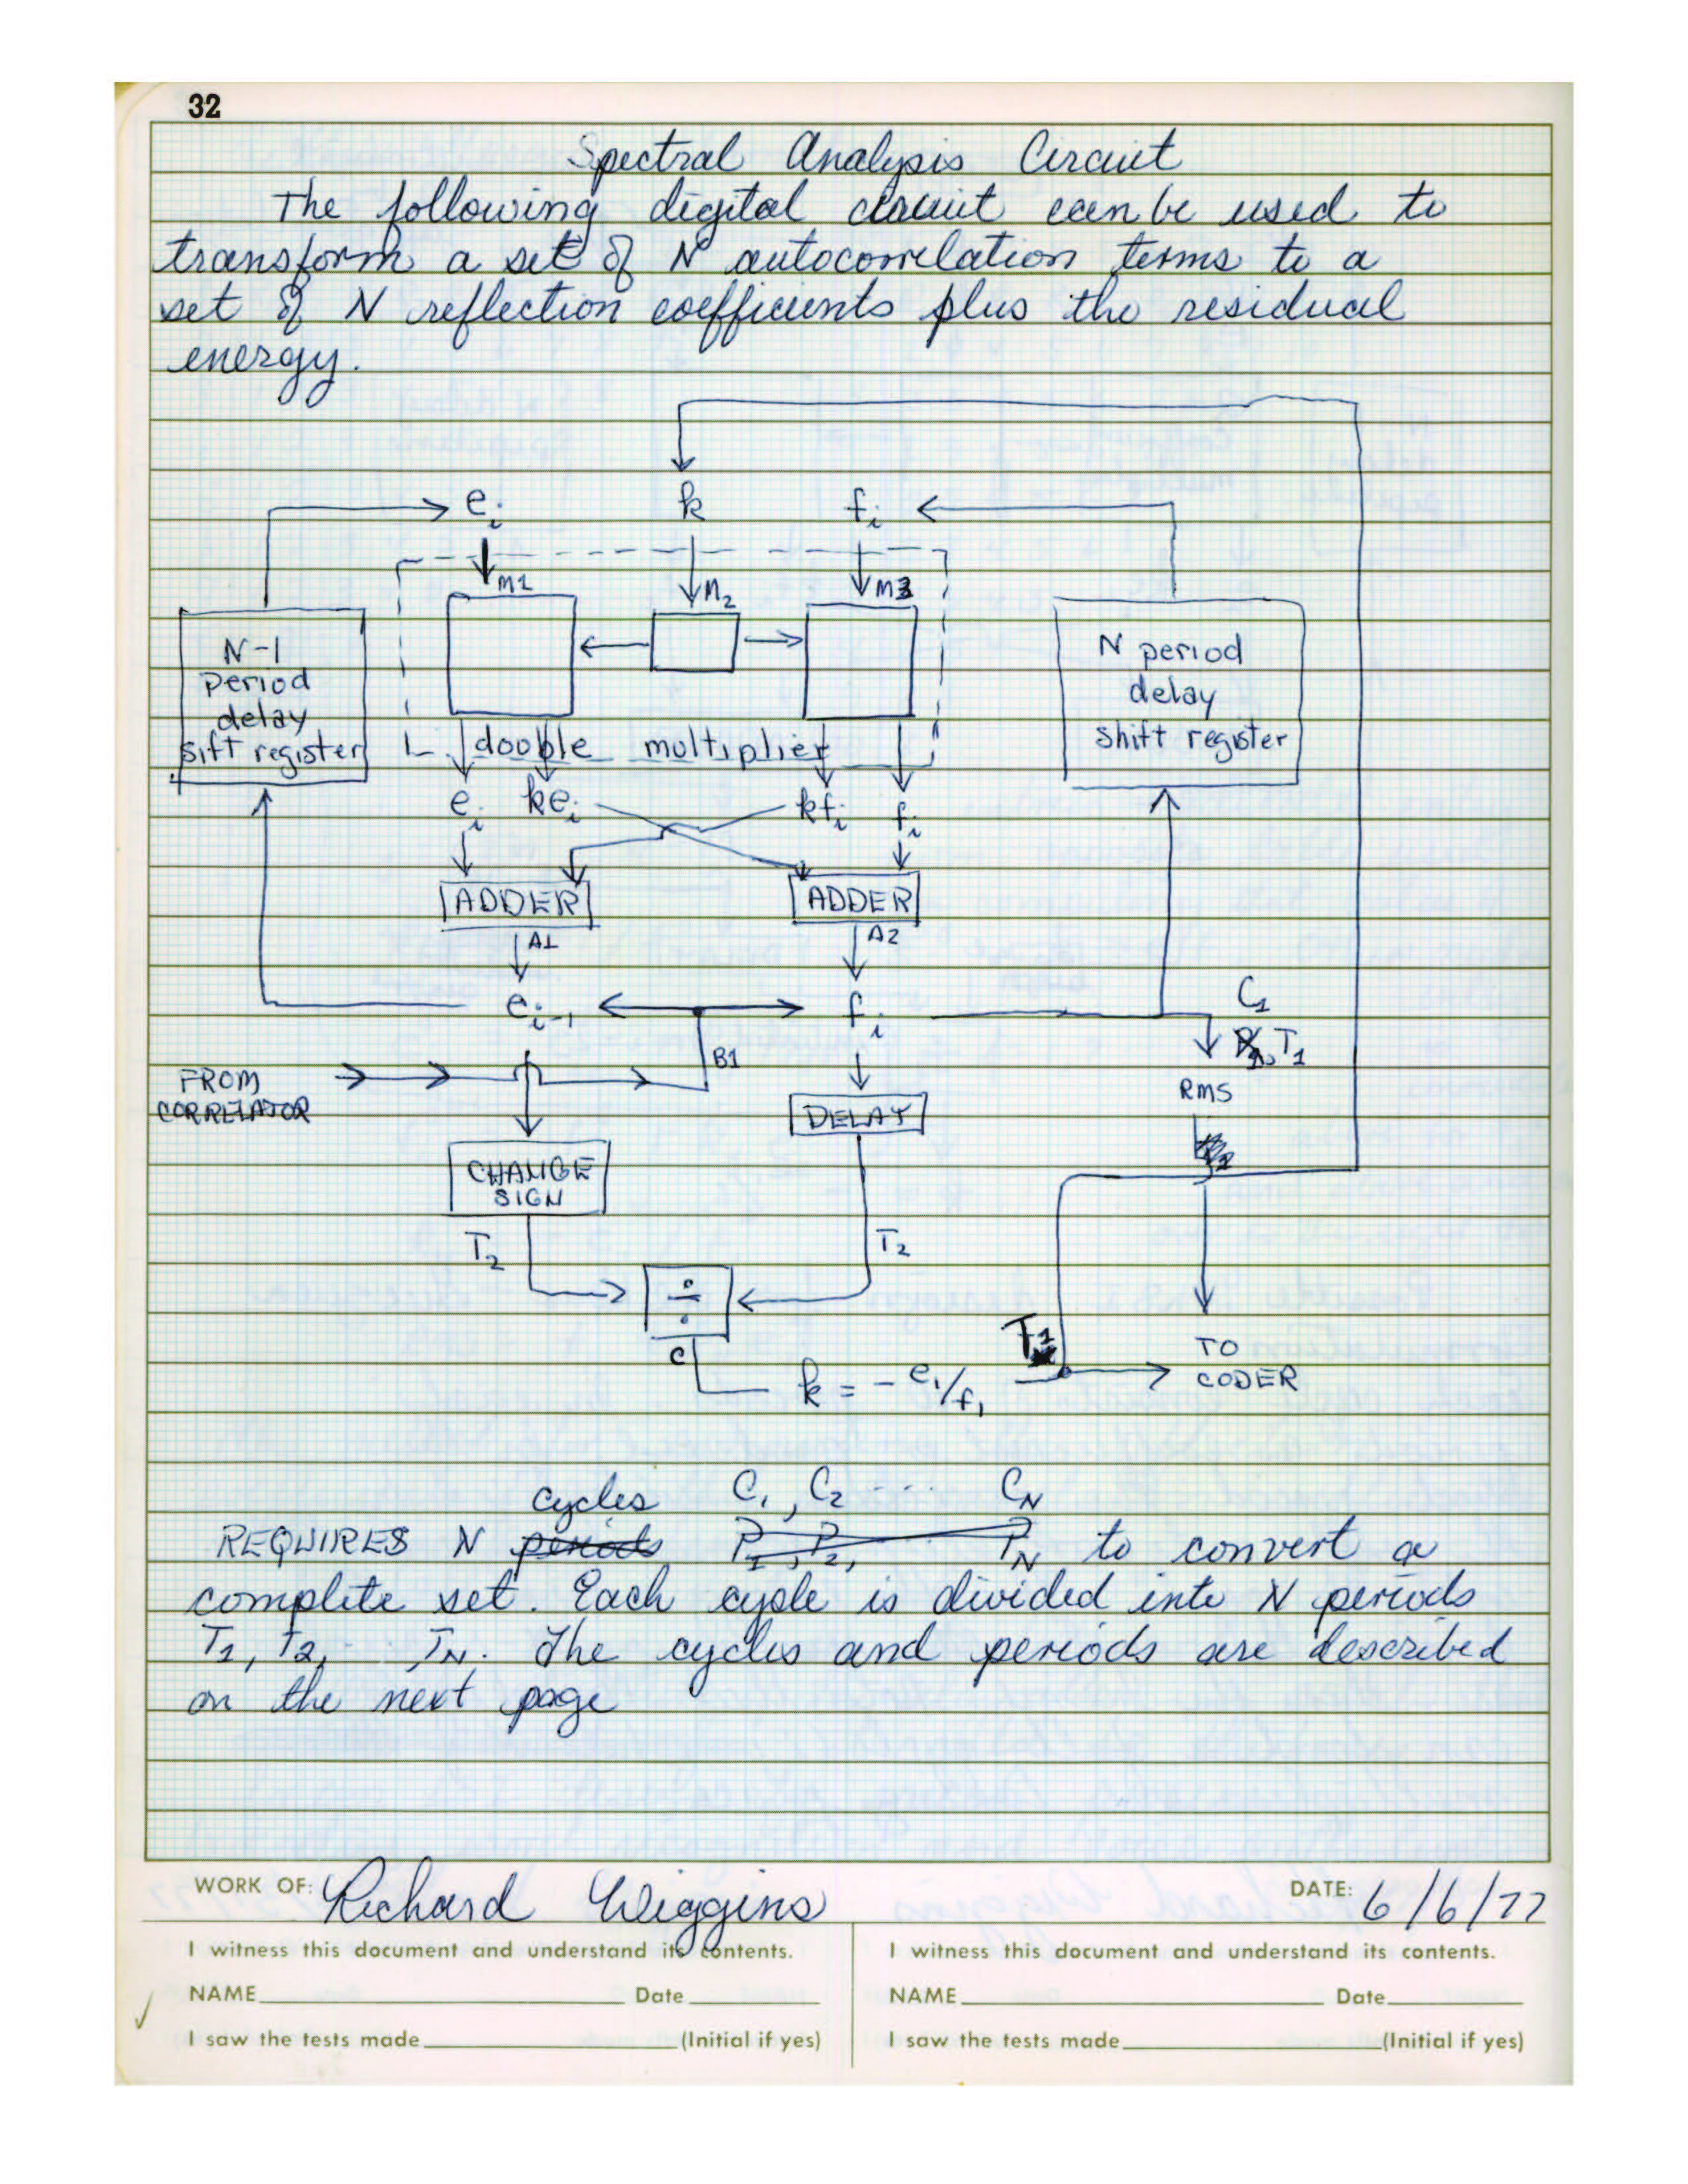 32
Spectral Analysis Circuit
The following digital circuit can be used to
transform a set of N autocorrelation terms to a
set of N reflection coefficients plus the residual
energy.
e_i k f_i
M1 M2 M3
N-1
period
delay
sift register
N period
delay
shift register
double multiplier
e_i ke_i kf_i f_i
ADDER ADDER
A1 A2
e_i-1 f_i
C1
T1
B1
FROM
CORRELATOR
RMS
DELAY
CHANGE
SIGN
T2 T2
÷
C
T1
k = - e1/f1
TO
CODER
cycles C1, C2 ... CN
REQUIRES N periods P1, P2, PN to convert a
complete set. Each cycle is divided into N periods
T1, T2, .. TN. The cycles and periods are described
on the next page
WORK OF: Richard Wiggins DATE: 6/6/77
I witness this document and understand its contents. I witness this document and understand its contents.
NAME Date NAME Date
I saw the tests made (Initial if yes) I saw the tests made (Initial if yes)